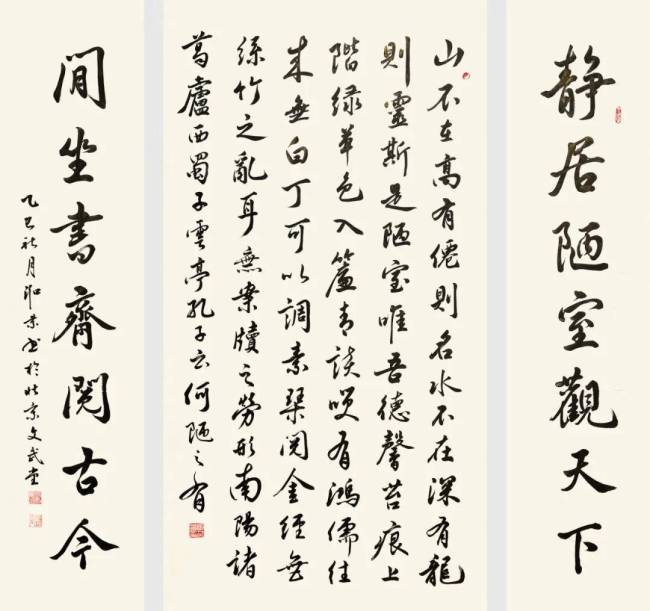 静居陋室觀天下
山不在高有僊則名水不在深有龍
則靈斯是陋室唯吾德馨苔痕上
階緑草色入簾青談咲有鴻儒往
来無白丁可以調素琴閲金經無
絲竹之亂耳無案牘之勞形南陽諸
葛廬西蜀子雲亭孔子云何陋之有
閒坐書齋閲古今
乙巳月書於北京文武堂